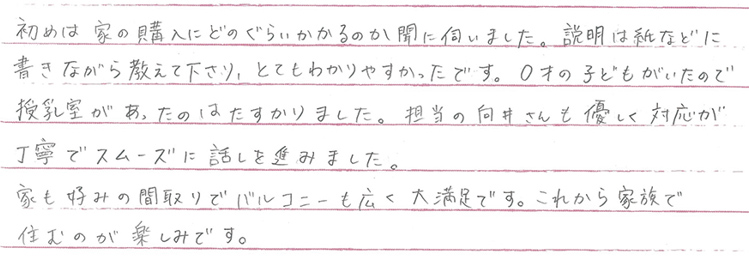 初めは家の購入にどのぐらいかかるのか聞に伺いました。説明は紙などに
書きながら教えて下さり、とてもわかりやすかったです。0才の子どもがいたので
授乳室があったのはたすかりました。担当の向井さんも優しく対応が
丁寧でスムーズに話しを進みました。
家も好みの間取りでバルコニーも広く大満足です。これから家族で
住むのが楽しみです。